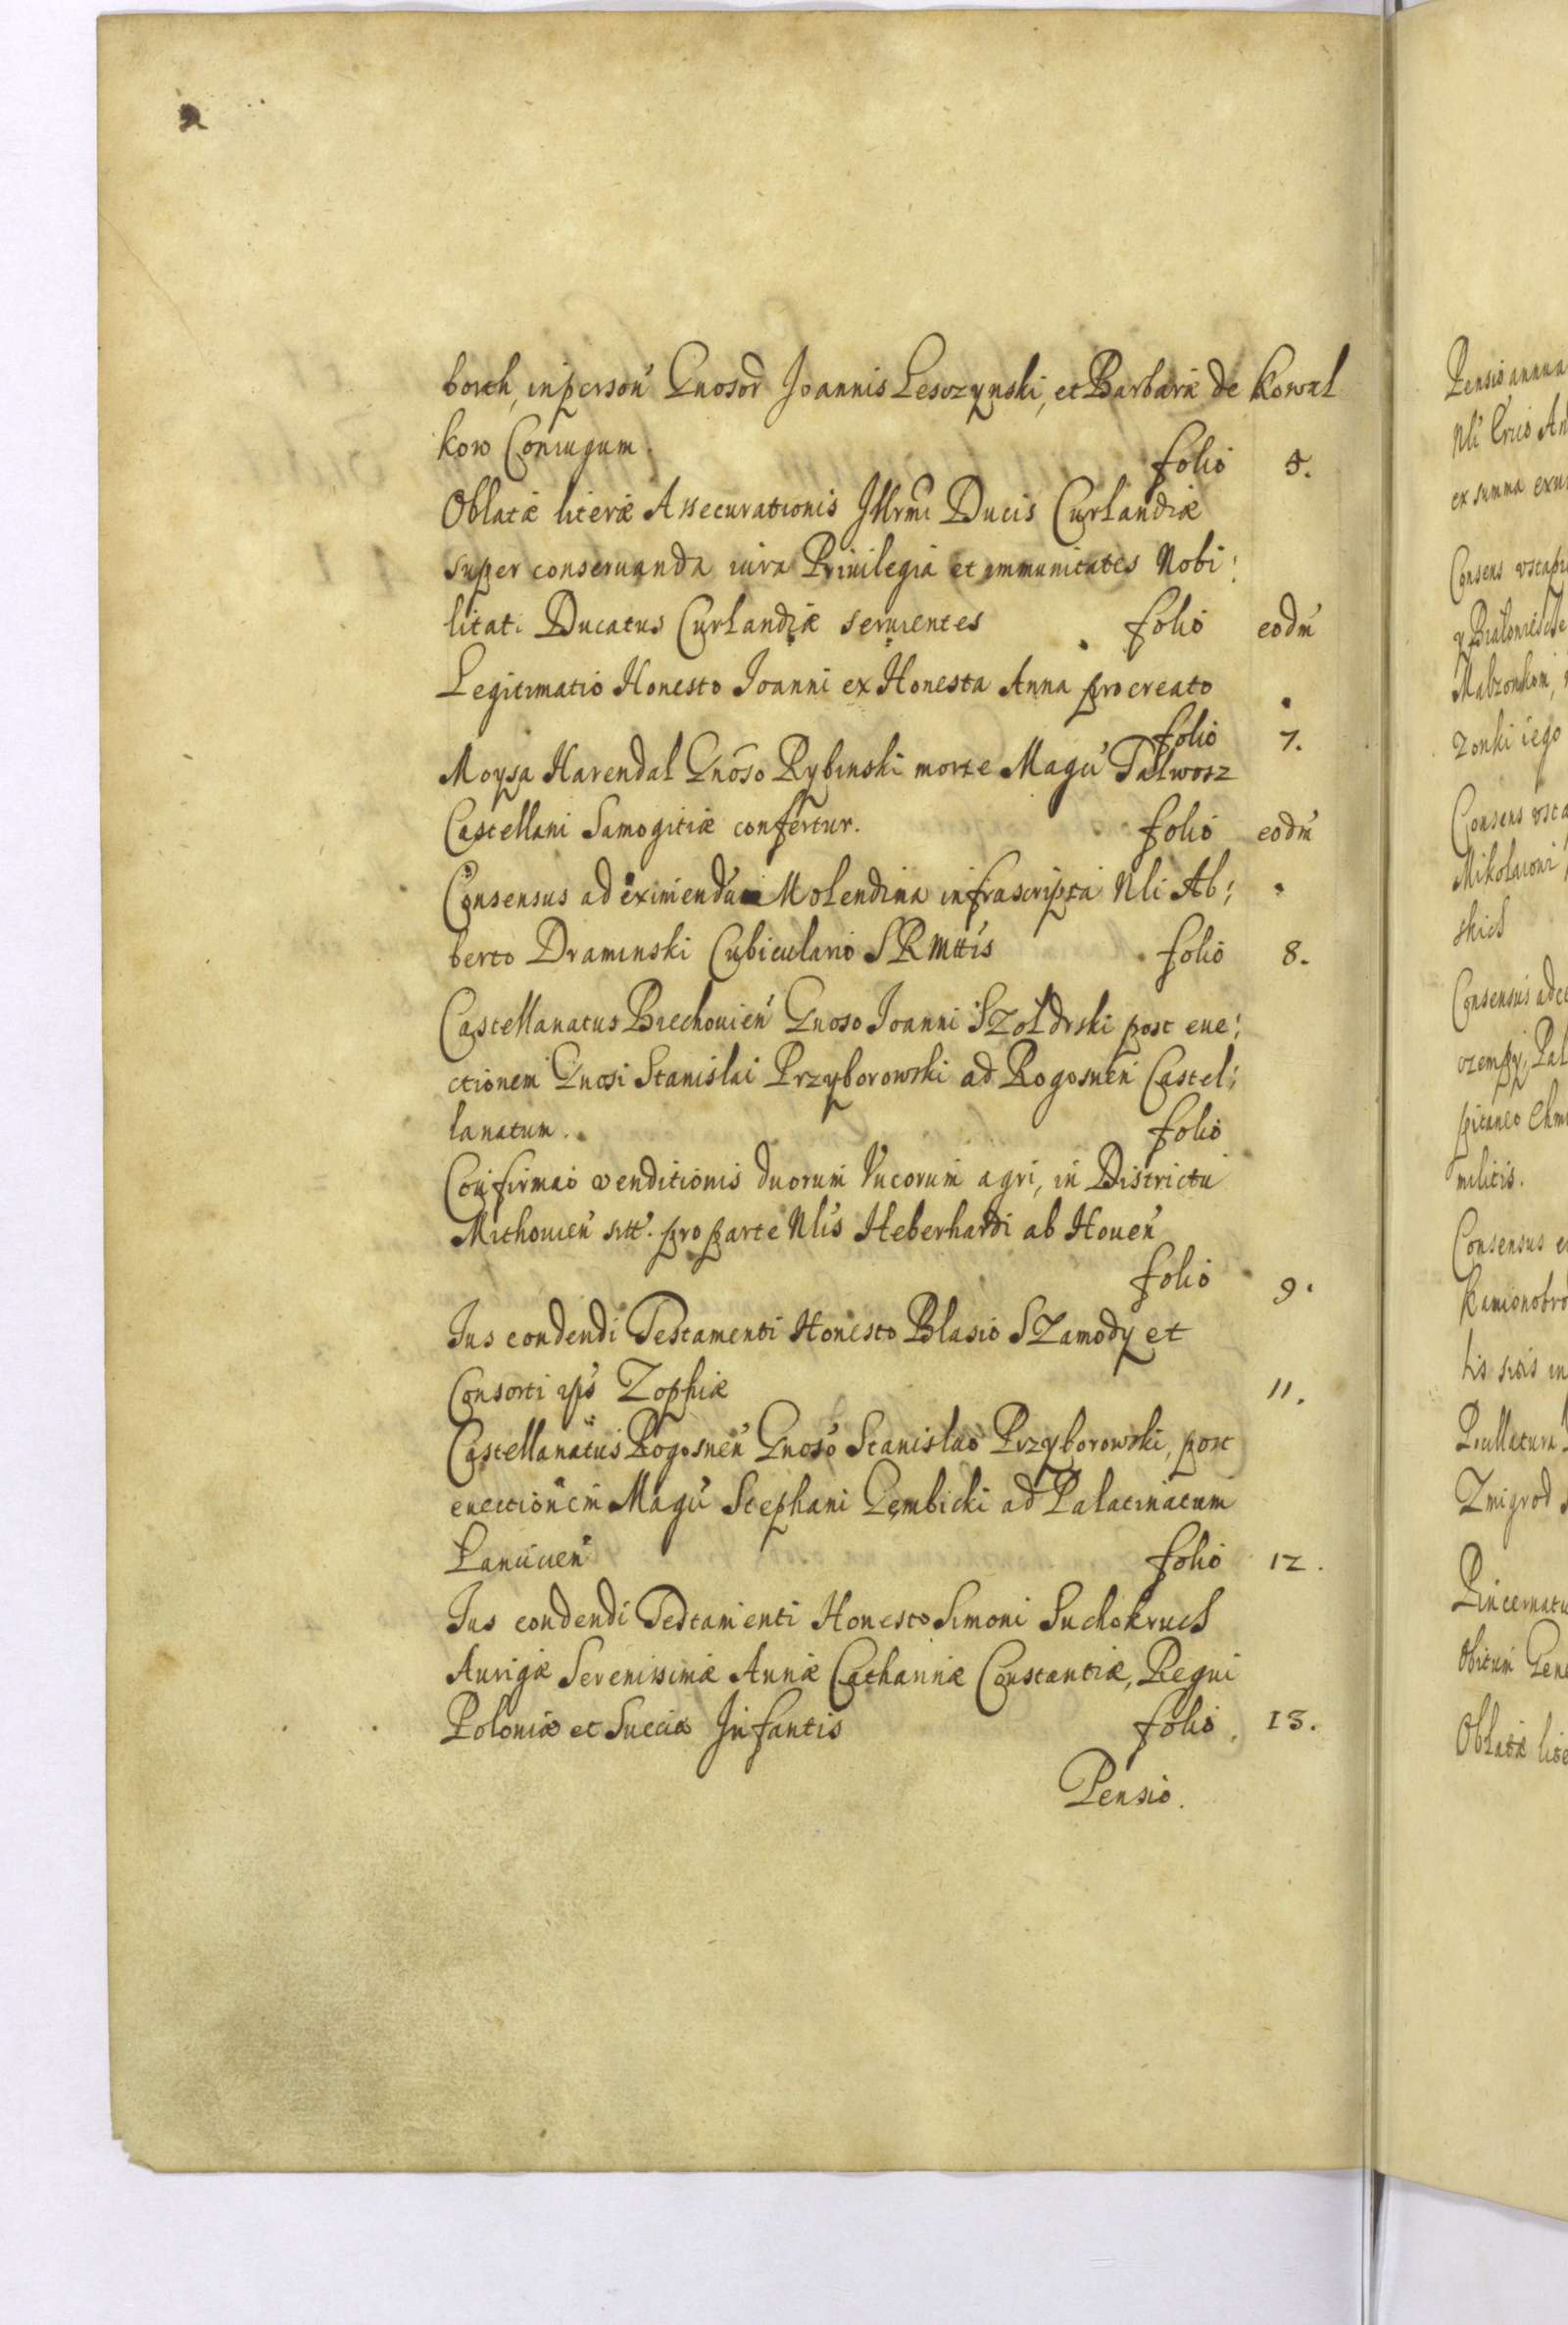 borch, in person' Gnosor Joannis Lesczynski, et Barbaræ de Kowal
kow Coniugum. folio 5.
Oblatæ literæ Assecurationis Illrmi Ducis Curlandiæ
super conseruanda iura Priuilegia et immunitates Nobi:
litati Ducatus Curlandiæ seruientes folio eodm'
Legitimatio Honesto Joanni ex Honesta Anna procreato
folio 7.
Moysa Havendal Gnoso Rybinski morte Magci Talwosz
Castellani Samogitiæ confertur. folio eodm'
Consensus ad eximendum Molendina infrascripta Nli Al:
berto Draminski Cubiculario SRMttis folio 8.
Castellanatus Biechouien' Gnoso Joanni Szołdrski post eue:
ctionem Gnosi Stanislai Przyborowski ad Rogosnen' Castel:
lanatum. folio
Confirmao venditionis duorum Vncorum agri, in Districtu
Mithouien' sitt'. pro parte Nlis Heberhardi ab Houen'
folio 9.
Ius condendi Testamenti Honesto Blasio SZamody et
Consorti ips' Zophiæ 11.
Castellanatus Rogosnen' Gnoso Stanislao Przyborowski, post
euectionem Magci Stephani Gembicki ad Palatinatum
Lanciuen' folio 12.
Ius condendi Testamenti Honesto Simoni Suchokruch
Aurigæ Serenissimæ Annæ Catharinæ Constantiæ, Regni
Poloniæ et Sueciæ Infantis folio. 13.
Pensio.
Pensio annua
Nli Eric An
ex summa
Consens vsta
y
zonki iego
Consens vsta
Mikolaioni
skich
Consensus ad
militis.
Consensus
lis suis in
Zmigrod
Pincernatu
Obitum Gene
Oblatæ lite